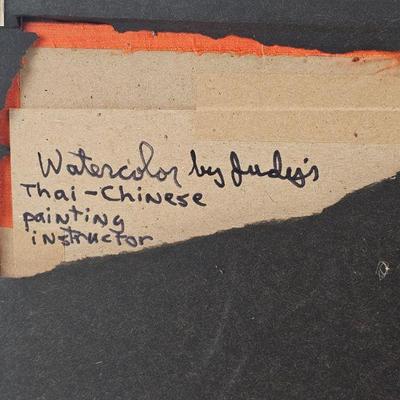 Watercolor by Judy's
Thai-Chinese
painting
instructor